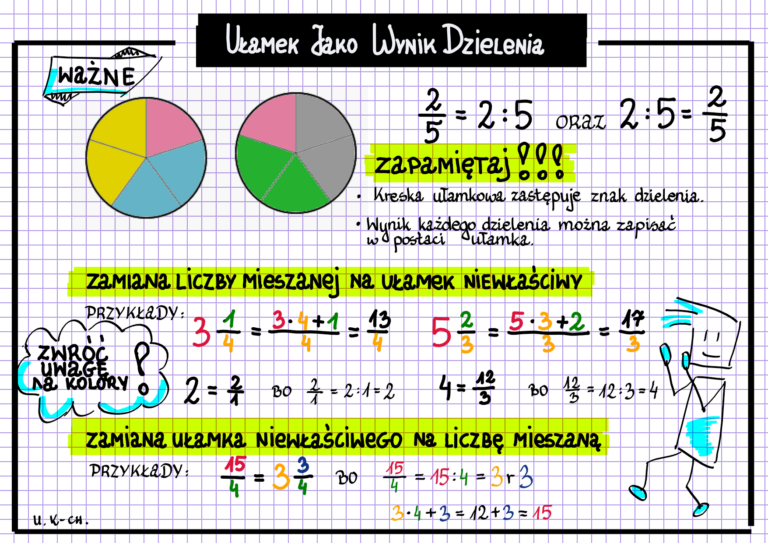 Ułamek Jako Wynik Dzielenia
WAŻNE
2/5 = 2:5 ORAZ 2:5 = 2/5
ZAPAMIĘTAJ!!!
• Kreska ułamkowa zastępuje znak dzielenia.
• Wynik każdego dzielenia można zapisać
w postaci ułamka.
ZAMIANA LICZBY MIESZANEJ NA UŁAMEK NIEWŁAŚCIWY
PRZYKŁADY:
3 1/4 = 3·4+1/4 = 13/4
5 2/3 = 5·3+2/3 = 17/3
ZWRÓĆ
UWAGĘ
NA KOLORY!
2 = 2/1 BO 2/1 = 2:1=2
4 = 12/3 BO 12/3 = 12:3=4
ZAMIANA UŁAMKA NIEWŁAŚCIWEGO NA LICZBĘ MIESZANĄ
PRZYKŁADY:
15/4 = 3 3/4 BO 15/4 = 15:4 = 3 r 3
3·4+3=12+3=15
U. K-CH.